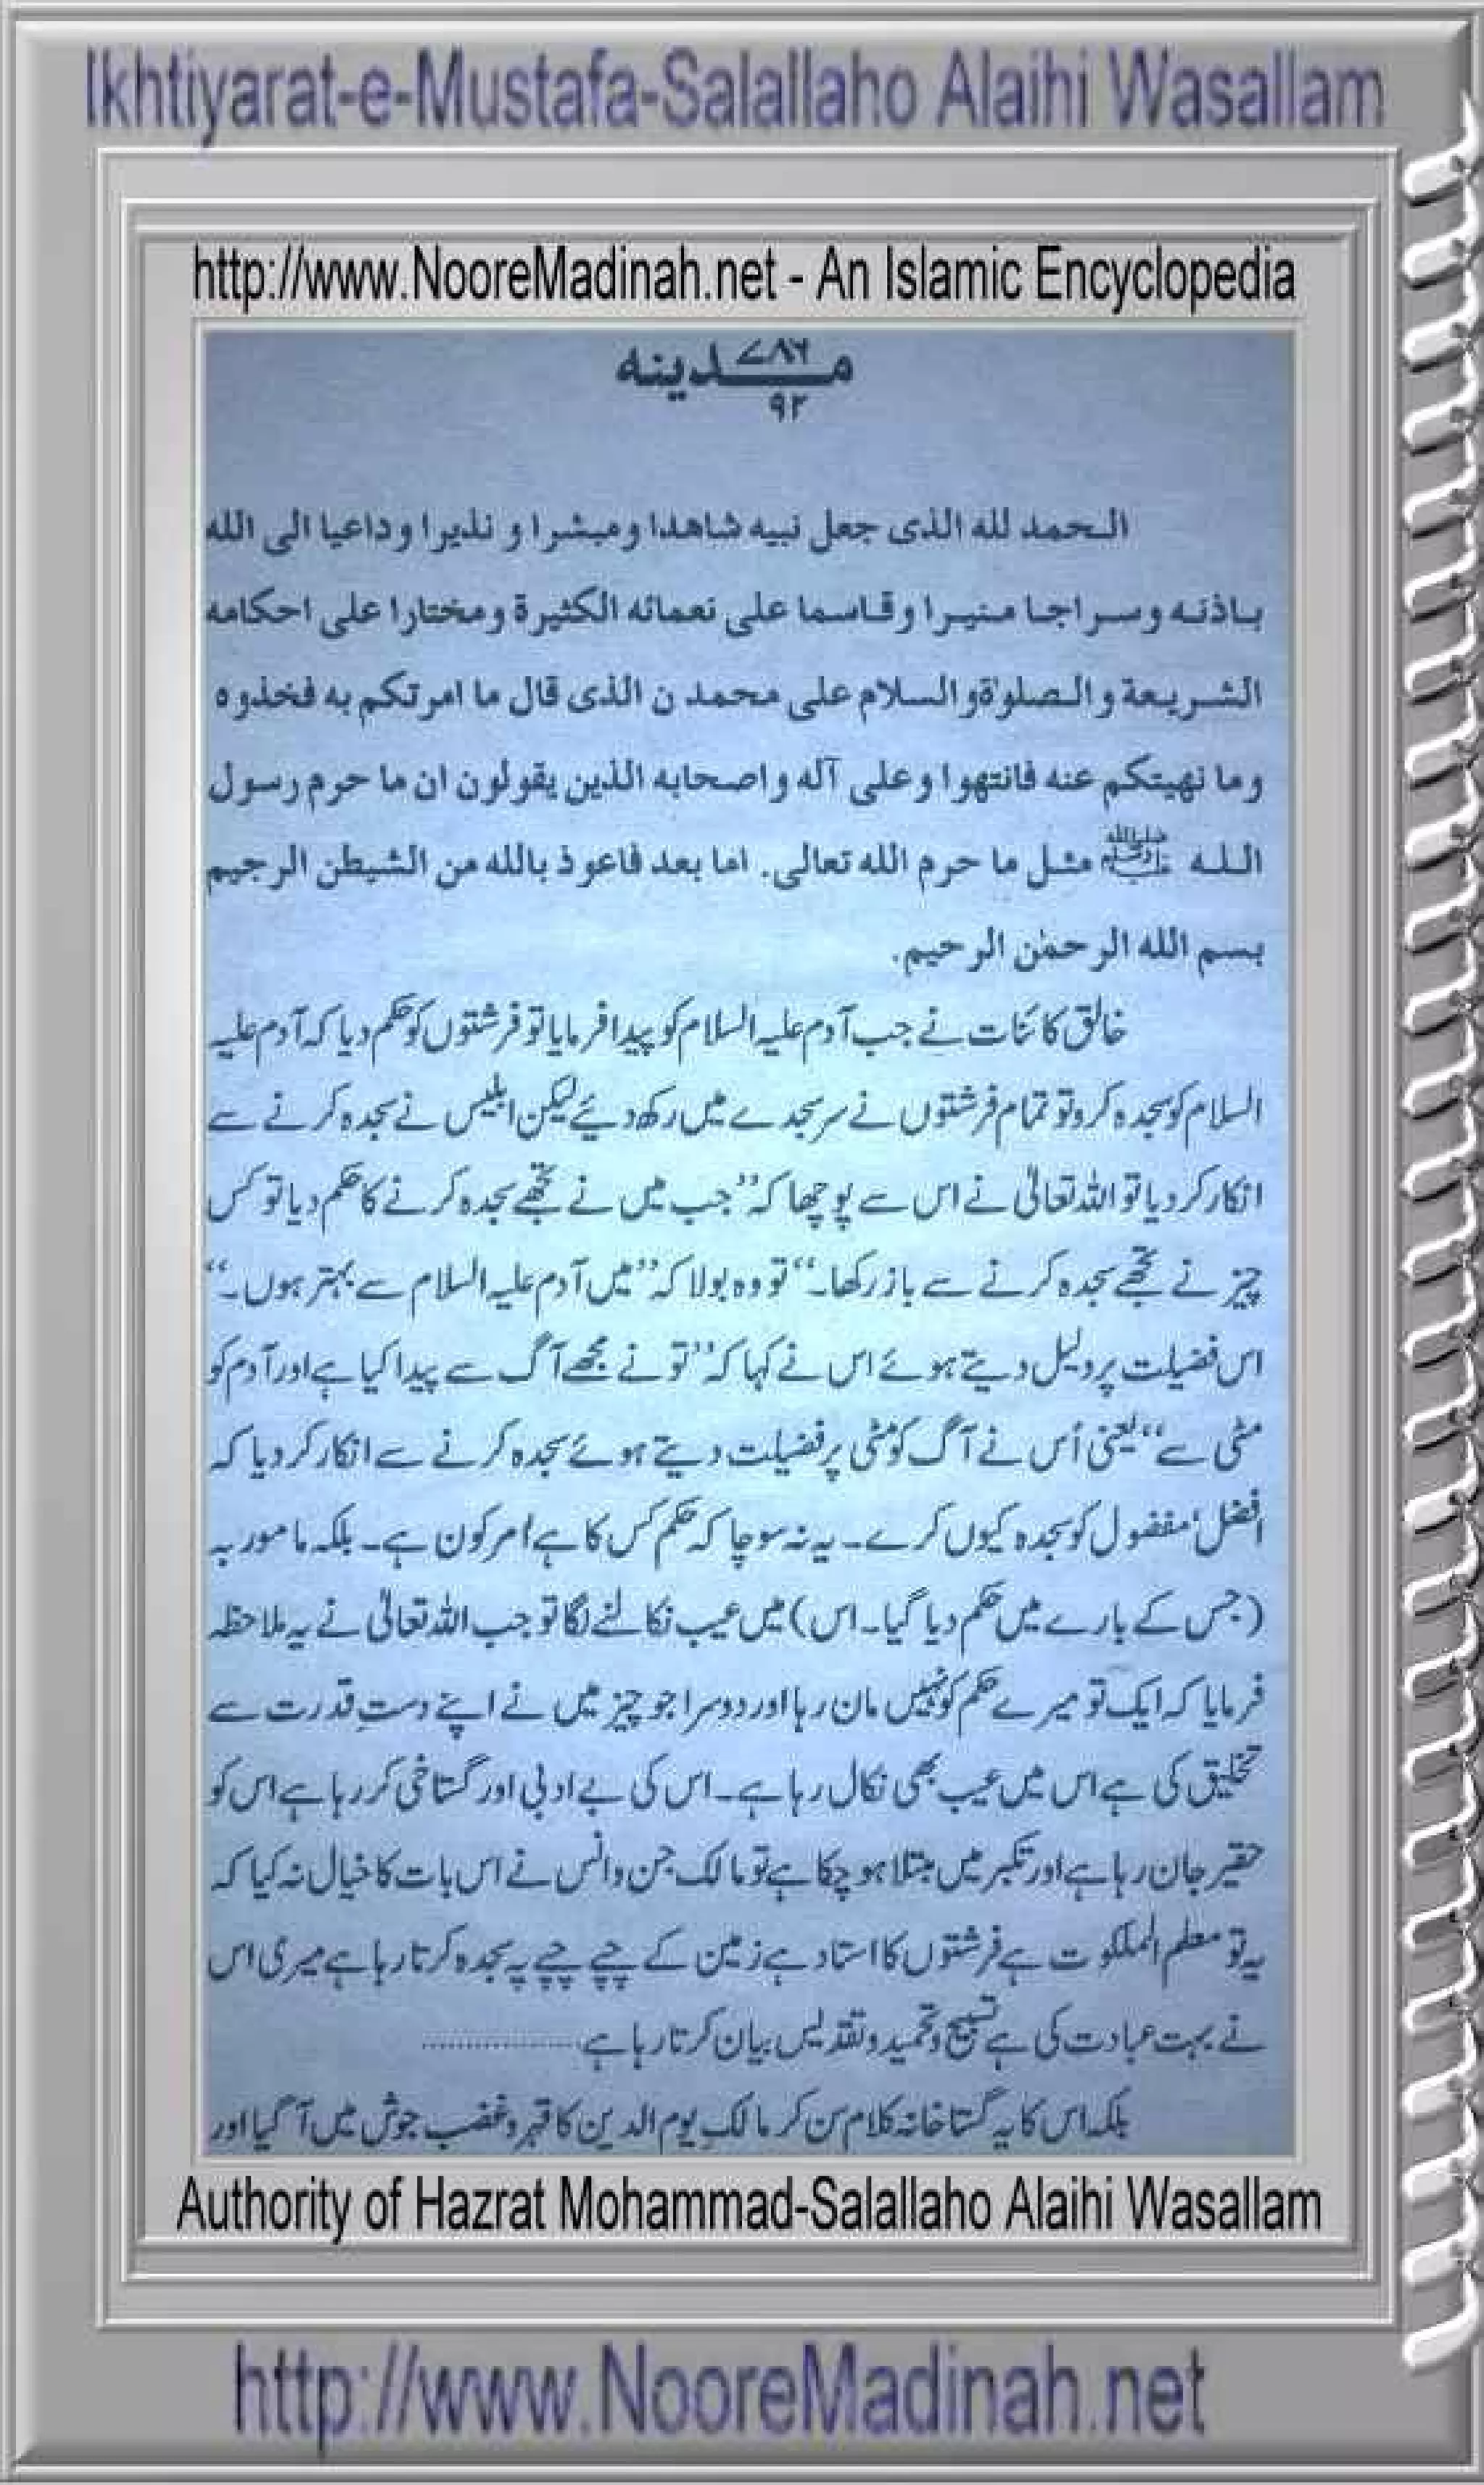 Ikhtiyarat-e-Mustafa-Salallaho Alaihi Wasallam
http://www.NooreMadinah.net - An Islamic Encyclopedia
۷۸۶
مـــدینه
۹۲
الـحمد لله الذى جعل نبيه شاهدا ومبشرا و نذيرا وداعيا الى الله
بـاذنـه وسـراجـا مـنيـرا وقـاسما على نعمائه الكثيرة ومختارا على احكامه
الشـريـعة والـصلوٰة والسلام على محمد ن الذى قال ما امرتكم به فخذوه
وما نهيتكم عنه فانتهوا وعلى آله واصحابه الذين يقولون ان ما حرم رسول
الـلـه ﷺ مثـل ما حرم الله تعالى. اما بعد فاعوذ بالله من الشيطن الرجيم
بسم الله الرحمٰن الرحيم.
خالق کائنات نے جب آدم علیہ السلام کو پیدا فرمایا تو فرشتوں کو حکم دیا کہ آدم علیہ
السلام کو سجدہ کرو تو تمام فرشتوں نے سر سجدے میں رکھ دیئے لیکن ابلیس نے سجدہ کرنے سے
انکار کر دیا تو اللہ تعالیٰ نے اس سے پوچھا کہ ’’جب میں نے تجھے سجدہ کرنے کا حکم دیا تو کس
چیز نے تجھے سجدہ کرنے سے باز رکھا۔‘‘ تو وہ بولا کہ ’’میں آدم علیہ السلام سے بہتر ہوں۔‘‘
اس فضیلت پر دلیل دیتے ہوئے اس نے کہا کہ ’’تو نے مجھے آگ سے پیدا کیا ہے اور آدم کو
مٹی سے‘‘ یعنی اُس نے آگ کو مٹی پر فضیلت دیتے ہوئے سجدہ کرنے سے انکار کر دیا کہ
افضل‘ مفضول کو سجدہ کیوں کرے۔ یہ نہ سوچا کہ حکم کس کا ہے امر کون ہے۔ بلکہ مامور بہ
(جس کے بارے میں حکم دیا گیا۔ اس) میں عیب نکالنے لگا تو جب اللہ تعالیٰ نے یہ ملاحظہ
فرمایا کہ ایک تو میرے حکم کو نہیں مان رہا اور دوسرا جو چیز میں نے اپنے دستِ قدرت سے
تخلیق کی ہے اس میں عیب بھی نکال رہا ہے۔ اس کی بے ادبی اور گستاخی کر رہا ہے اس کو
حقیر جان رہا ہے اور تکبر میں مبتلا ہو چکا ہے تو مالک جن وانس نے اس بات کا خیال نہ کیا کہ
یہ تو معلم الملکوت ہے فرشتوں کا استاد ہے زمین کے چپے چپے پہ سجدہ کرتا رہا ہے میری اس
نے بہت عبادت کی ہے تسبیح وتحمید وتقدیس بیان کرتا رہا ہے ..................
بلکہ اس کا یہ گستاخانہ کلام سن کر مالکِ یوم الدین کا قہر وغضب جوش میں آ گیا اور
Authority of Hazrat Mohammad-Salallaho Alaihi Wasallam
http://www.NooreMadinah.net